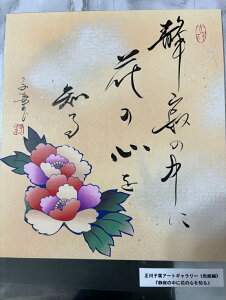 静寂の中に
花の心を
知る
正川子葉アートギャラリー(色紙編)
『静寂の中に花の心を知る』